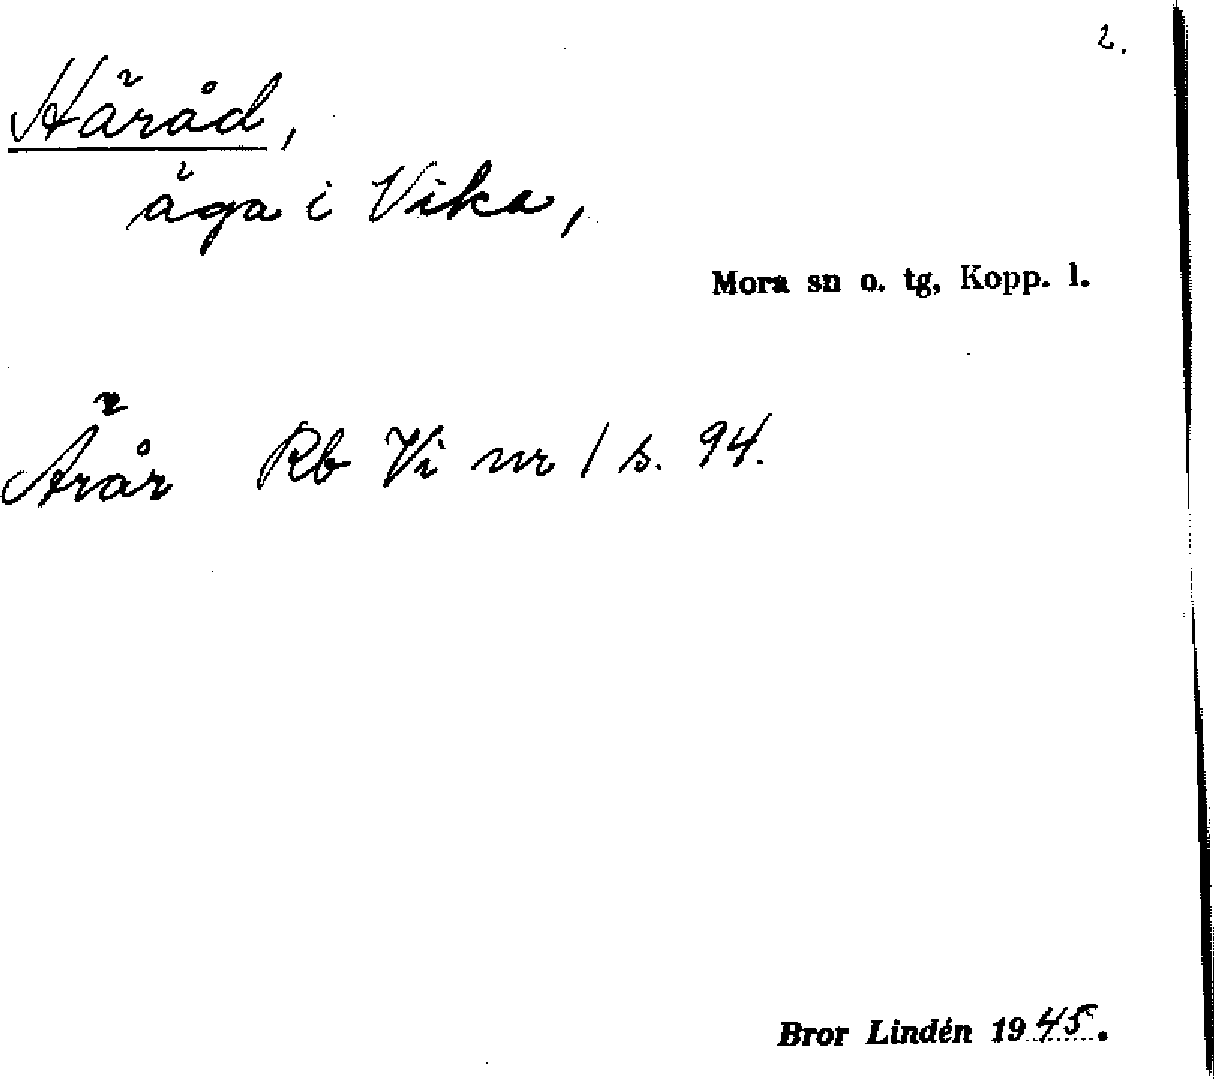 2.
Häråd,
äga i Vika,
Mora sn o. tg, Kopp. l.
Ärår Rb Vi nr 1 s. 94.
Bror Lindén 1945.